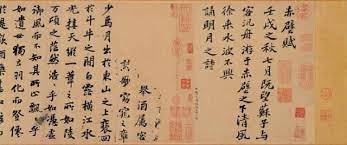 赤壁賦
壬戌之秋七月既望蘇子與
客泛舟游于赤壁之下清風
徐来水波不興
誦明月之詩
舉酒屬客
歌窈窕之章
少焉月出於東山之上裵回
於斗牛之間白露横江水
光接天縱一葦之所如陵
萬頃之茫然浩乎如憑虚
御風而不知其所止飄乎
如遺世獨立羽化而登僊